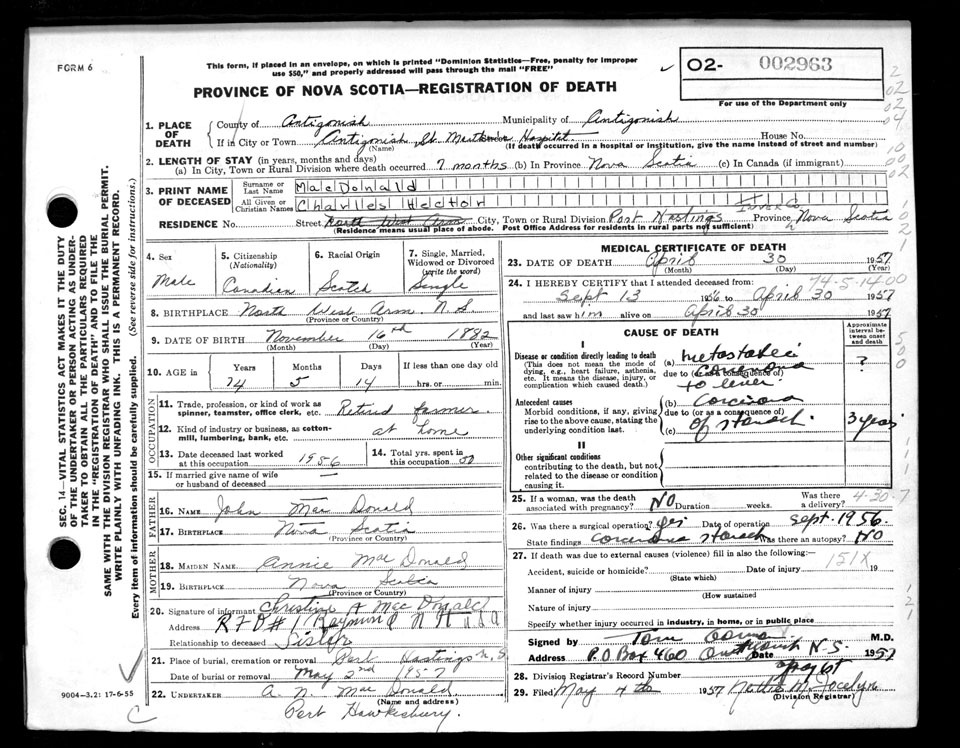 FORM 6
This form, if placed in an envelope, on which is printed "Dominion Statistics—Free, penalty for improper
use $50," and properly addressed will pass through the mail "FREE"
O2- 002963
For use of the Department only
PROVINCE OF NOVA SCOTIA—REGISTRATION OF DEATH
1. PLACE OF DEATH
County of Antigonish Municipality of Antigonish
If in City or Town Antigonish, St. Martha's Hospital House No.
(Name) (If death occurred in a hospital or institution, give the name instead of street and number)
2. LENGTH OF STAY (in years, months and days)
(a) In City, Town or Rural Division where death occurred 7 months (b) In Province Nova Scotia (c) In Canada (if immigrant)
3. PRINT NAME OF DECEASED
Surname or Last Name MacDonald
All Given or Christian Names Charles Hector
Inver Co.
RESIDENCE No. Street North West Arm City, Town or Rural Division Port Hastings Province Nova Scotia
(Residence means usual place of abode. Post Office Address for residents in rural parts not sufficient)
4. Sex Male
5. Citizenship (Nationality) Canadian
6. Racial Origin Scotch
7. Single, Married, Widowed or Divorced (write the word) Single
8. BIRTHPLACE North West Arm N.S.
(Province or Country)
9. DATE OF BIRTH November 16th 1882
(Month) (Day) (Year)
10. AGE Years Months Days If less than one day old
74 5 14 hrs. or min.
OCCUPATION
11. Trade, profession, or kind of work as spinner, teamster, office clerk, etc. Retired farmer
12. Kind of industry or business, as cotton-mill, lumbering, bank, etc. at home
13. Date deceased last worked at this occupation 1956
14. Total yrs. spent in this occupation 50
15. If married give name of wife or husband of deceased
FATHER
16. NAME John Mac Donald
17. BIRTHPLACE Nova Scotia
(Province or Country)
MOTHER
18. MAIDEN NAME Annie Mac Donald
19. BIRTHPLACE Nova Scotia
(Province or Country)
20. Signature of informant Christine A Mac Donald
Address R F D # 1 Raymond N H USA
Relationship to deceased Sister
21. Place of burial, cremation or removal Port Hastings N.S.
Date of burial or removal May 2nd 1957
22. UNDERTAKER A. N. Mac Donald
(Name and address)
Port Hawkesbury.
9004—3.21: 17-6-55
MEDICAL CERTIFICATE OF DEATH
23. DATE OF DEATH April 30 1957
(Month) (Day) (Year)
74-5-14-00
24. I HEREBY CERTIFY that I attended deceased from:
Sept 13 1956 to April 30 1957
and last saw him alive on April 30 1957
CAUSE OF DEATH
Approximate interval between onset and death
I
Disease or condition directly leading to death
(This does not mean the mode of dying, e.g., heart failure, asthenia, etc. It means the disease, injury, or complication which caused death.)
(a) metastatic carcinoma to liver ?
due to (or as a consequence of)
Antecedent causes
Morbid conditions, if any, giving rise to the above cause, stating the underlying condition last.
(b) Carcinoma
due to (or as a consequence of)
(c) of stomach 3 years
II
Other significant conditions
contributing to the death, but not related to the disease or condition causing it.
4-30-7
25. If a woman, was the death associated with pregnancy? NO Duration weeks. Was there a delivery?
26. Was there a surgical operation? yes Date of operation Sept. 1956.
State findings Carcinoma stomach Was there an autopsy? NO
27. If death was due to external causes (violence) fill in also the following:—
151X
Accident, suicide or homicide? Date of injury 19
(State which)
Manner of injury
(How sustained
Nature of injury
Specify whether injury occurred in industry, in home, or in public place
Signed by M.D.
Address P.O Box 460 Antigonish N.S. Date 1957
28. Division Registrar's Record Number
29. Filed May 4th 1957 M. Jocelyn
(Division Registrar)
SEC. 14—VITAL STATISTICS ACT MAKES IT THE DUTY
OF THE UNDERTAKER OR PERSON ACTING AS UNDER-
TAKER TO OBTAIN ALL THE PARTICULARS REQUIRED
IN THE "REGISTRATION OF DEATH" AND TO FILE THE
SAME WITH THE DIVISION REGISTRAR WHO SHALL ISSUE THE BURIAL PERMIT.
WRITE PLAINLY WITH UNFADING INK. THIS IS A PERMANENT RECORD.
Every item of information should be carefully supplied. (See reverse side for instructions.)